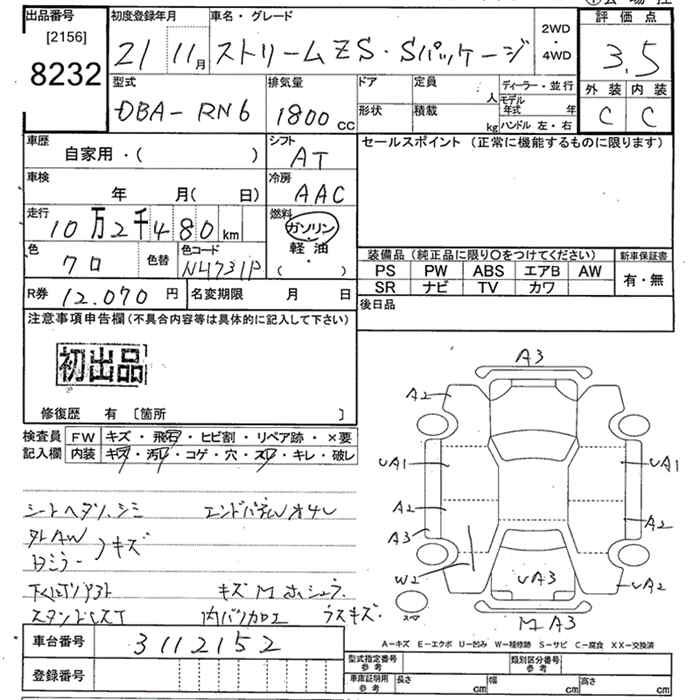 出品番号 初度登録年月 車名・グレード 評価点
[2156]
8232
21 11月 ストリームZS・Sパッケージ 2WD・4WD 3.5
型式 排気量 ドア 定員 人 ディーラー・並行 外装 内装
DBA-RN6 1800cc 形状 積載 kg モデル年式 年 C C
ハンドル 左・右
車歴 シフト セールスポイント (正常に機能するものに限ります)
自家用・( ) AT
車検 冷房
年 月( 日) AAC
走行 燃料
10万2千480km ガソリン
軽・油
・( )
色 色替 色コード
クロ NH731P
装備品 (純正品に限り〇をつけてください) 新車保証書
PS PW ABS エアB AW 有・無
SR ナビ TV カワ
R券 12.070円 名変期限 月 日 後日品
注意事項申告欄(不具合内容等は具体的に記入して下さい)
初出品
修復歴 有 〔箇所 〕
検査員 FW キズ・飛石・ヒビ割・リペア跡・×要
記入欄 内装 キズ・汚レ・コゲ・穴・スレ・キレ・破レ
シートヘタリ、シミ
キズ
スタンド
ラスキズ.
A3
A2
UA1 UA1
A2 A2
A3
W2 UA3 UA2
スペア
M A3
A-キズ E-エクボ U-凹み W-補修跡 S-サビ C-腐食 XX-交換済
車台番号 3112152
型式指定番号 参考 類別区分番号 参考
登録番号
車庫証明用 参考 長さ cm 幅 cm 高さ cm